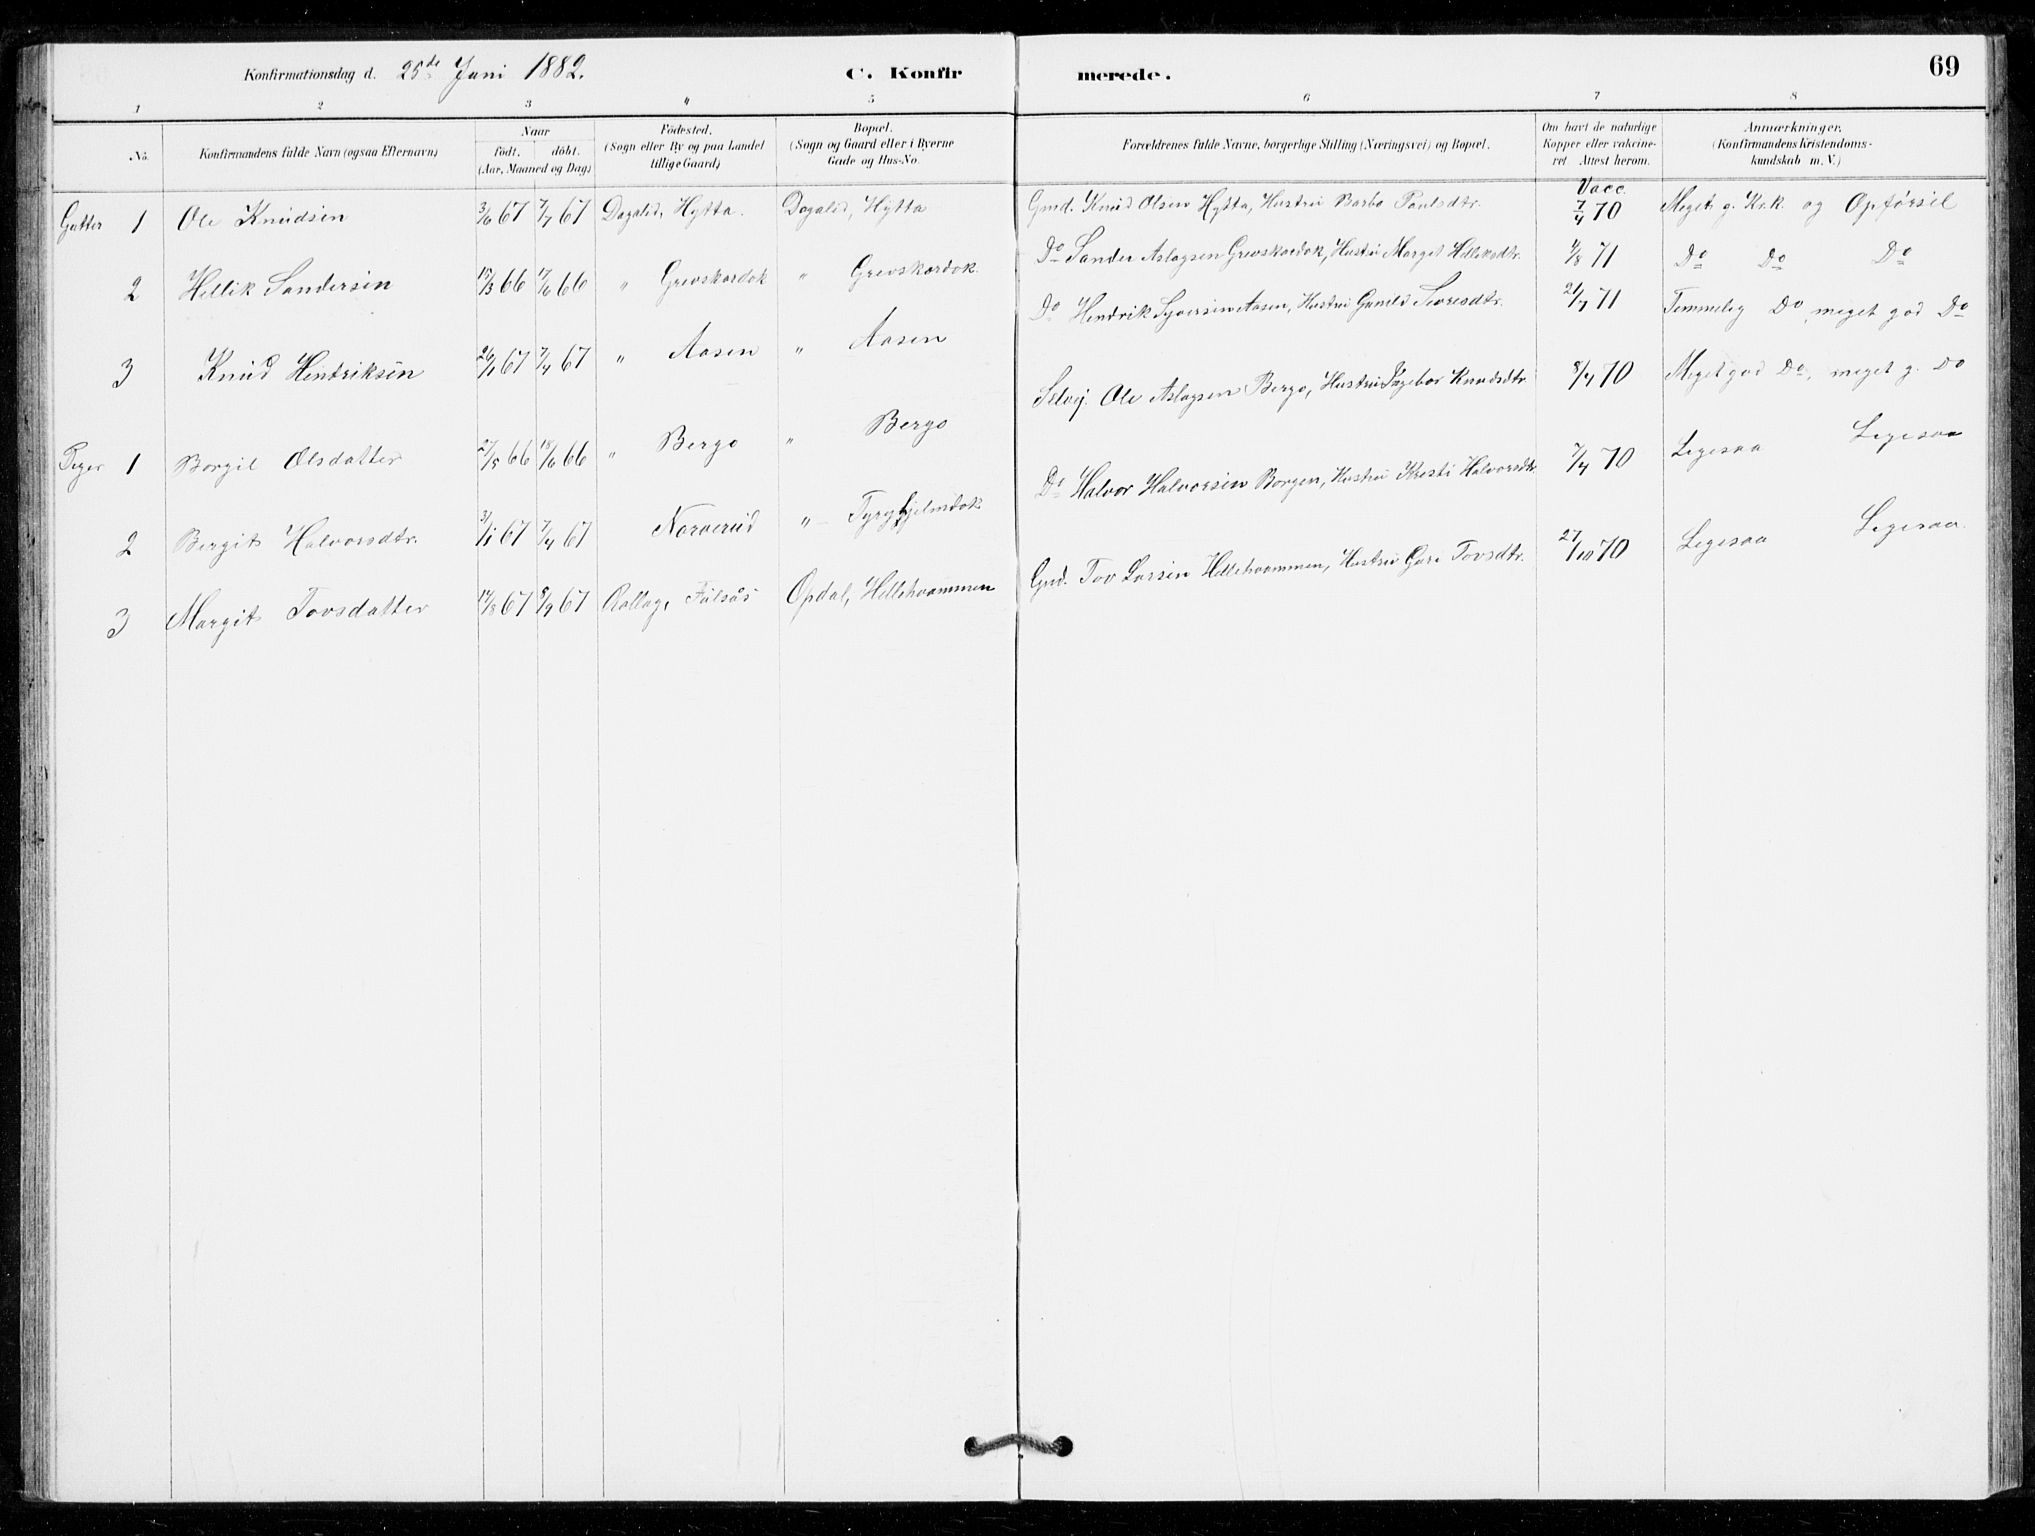 Konfirmationsdag d. 25de Juni 1882. C. Konfirmerede. 69
1 2 3 " 5 6 7 8
No. Konfirmandens fulde Navn (ogsaa Efternavn) Naar født. døbt. (Aar, Maaned og Dag) Fødested. (Sogn eller By og paa Landet tillige Gaard) Bopæl. (Sogn og Gaard eller i Byerne Gade og Hus-No. Forældrenes fulde Navne, borgerlige Stilling (Næringsvei) og Bopæl. Om havt de naturlige Kopper eller vakcineret. Attest herom. Anmærkninger. (Konfirmandens Kristendomskundskab m. V.)
Gutter 1 Ole Knudsen 3/6 67 7/7 67 Dagalid, Hytta. Dagalid, Hytta Gmd. Knud Olsen Hytta, Hustru Barbo Paulsdtr. Vacc. 7/4 70 Meget g. Kr.k. og Opførsel
2 Hellik Sandersen 66 17/6 66 " Grevskardok " Grevskardok. Do Sander Aslagsen Grevskardok, Hustru Marget Helliksdtr. 71 Do Do Do
3 Knud Hendriksen 67 7/4 67 " Aasen " Aasen Do Hendrik Syversen Aasen, Hustru Gunild Sevresdtr. 71 Temmelig Do, meget god Do
Piger 1 Borgil Olsdatter 27/5 66 18/6 66 " Bergo " Bergo Selvej. Ole Aslagsen Bergo, Hustru Ingebor Knudsdtr. 8/4 70 Meget god Do, meget g. Do
2 Bergit Halvorsdtr. 3/1 67 7/4 67 Norverud " Do Halvor Halvorsen Borgen, Hustru Kresti Halvorsdtr. 7/4 70 Ligesaa Ligesaa
3 Margit Tovsdatter 67 8/9 67 Rollag, Fulsås Opdal, Hellehvammen Gmd. Tov Larsen Hellehvammen, Hustru Guri Tovsdtr. 27/10 70 Ligesaa Ligesaa.